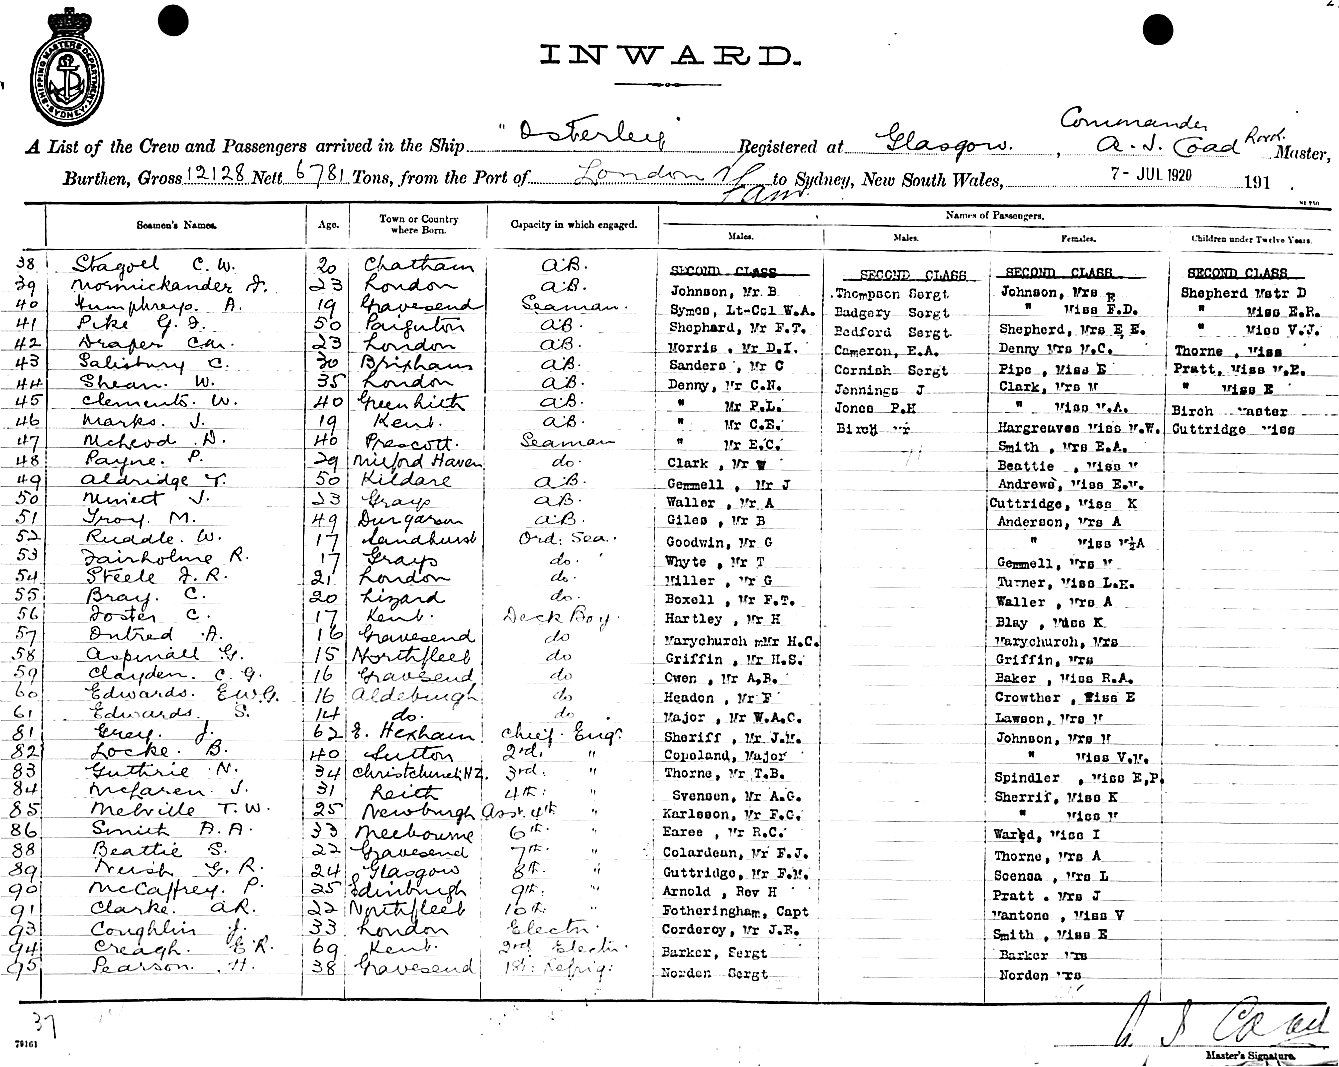 SHIPPING MASTERS DEPARTMENT SYDNEY
INWARD.
Commander
A List of the Crew and Passengers arrived in the Ship "Osterley" Registered at Glasgow. , A. J. Coad Master,
Burthen, Gross 12128 Nett 6781 Tons, from the Port of London to Sydney, New South Wales, 7 - JUL 1920 191 .
Names of Passengers.
Seamen's Names. Age. Town or Country where Born. Capacity in which engaged. Males. Males. Females. Children under Twelve Years.
38 Stagoll C. W. 20 Chatham A.B. SECOND CLASS SECOND CLASS SECOND CLASS SECOND CLASS
39 J. 23 London A.B. Johnson, Mr B Thompson Sergt Johnson, Mrs E Shepherd Mstr D
40 Humphreys. A. 19 Gravesend Seaman. Symes, Lt-Col W.A. Badgery Sergt " Miss F.D. " Miss E.R.
41 Pike G. J. 50 Paignton A.B. Shephard, Mr F.T. Bedford Sergt Shepherd, Mrs E E. " Miss V.J.
42 Draper 23 London A.B. Morris , Mr D.I. Cameron, E.A. Denny Mrs M.C. Thorne , Miss
43 Salisbury C. 30 Brixham A.B. Sanders , Mr C Cornish Sergt Pipe , Miss E Pratt, Miss M.E.
44 Shean. W. 35 London A.B. Denny, Mr C.N. Jennings J Clark, Mrs M " Miss E
45 Clements. W. 40 Greenhith A.B. " Mr P.L. Jones P.H " Miss M.A. Birch Master
46 Marks. J. 19 Kent. A.B. " Mr C.E. Birch Mr Hargreaves Miss M.W. Cuttridge Miss
47 McLeod. D. 40 Prescott. Seaman " Mr E.C. Smith , Mrs E.A.
48 Payne. P. 29 Milford Haven do. Clark , Mr W Beattie , Miss M
49 Aldridge T. 50 Kildare A.B. Gemmell , Mr J Andrews, Miss E.M.
50 J. 23 Grays A.B. Waller , Mr A Cuttridge, Miss K
51 Troy. M. 49 Dungarvan A.B. Giles , Mr B Anderson, Mrs A
52 Ruddle. W. 17 Sandhurst Ord. Sea. Goodwin, Mr G " Miss M A
53 Fairholme R. 17 Grays do. Whyte , Mr T Gemmell, Mrs M
54 Steele J. R. 21 London do. Miller , Mr G Turner, Miss L.K.
55 Bray. C. 20 Lizard do. Boxell , Mr F.T. Waller , Mrs A
56 Foster C. 17 Kent. Deck Boy. Hartley , Mr H Blay , Miss K
57 Ontred A. 16 Gravesend do Marychurch Mr H.C. Marychurch, Mrs
58 Aspinall G. 15 Northfleet do Griffin , Mr H.S. Griffin, Mrs
59 Clayden. C. G. 16 Gravesend do Owen , Mr A.B. Baker , Miss R.A.
60 Edwards. E.W.G. 16 Aldeburgh do Headon , Mr F Crowther , Miss E
61 Edwards. S. 14 do. do Major , Mr W.A.C. Lawson, Mrs M
81 Gray. J. 62 E. Hexham Chief. Engr. Sheriff , Mr J.M. Johnson, Mrs M
82 Locke. B. 40 Sutton 2nd. " Copeland, Major " Miss V.M.
83 Guthrie N. 34 Christchurch, N.Z. 3rd. " Thorne, Mr T.B. Spindler , Miss E.P.
84 McLaren J. 31 Leith 4th. " Svensen, Mr A.G. Sherrif, Miss K
85 Melville T. W. 25 Newburgh Asst. 4th. " Karlsson, Mr F.C. " Miss M
86 Smith A. A. 33 Melbourne 6th. " Earee , Mr R.C. Ward, Miss I
88 Beattie S. 22 Gravesend 7th. " Colardeau, Mr F.J. Thorne, Mrs A
89 Neish G. R. 24 Glasgow 8th. " Guttridge, Mr F.M. Scensa , Mrs L
90 McCaffrey. P. 25 Edinburgh 9th. " Arnold , Rev H Pratt . Mrs J
91 Clarke. A.R. 22 Northfleet 10th. " Fotheringham, Capt Mantone , Miss V
93 Coughlin J. 33 London Electr. Corderoy, Mr J.E. Smith , Miss E
94 Creagh. E R. 69 Kent. 2nd Electr. Barker, Sergt Barker Mrs
95 Pearson. H. 38 Gravesend 1st. Refrig. Norden Sergt Norden Mrs
37
79161
A J Coad
Master's Signature.